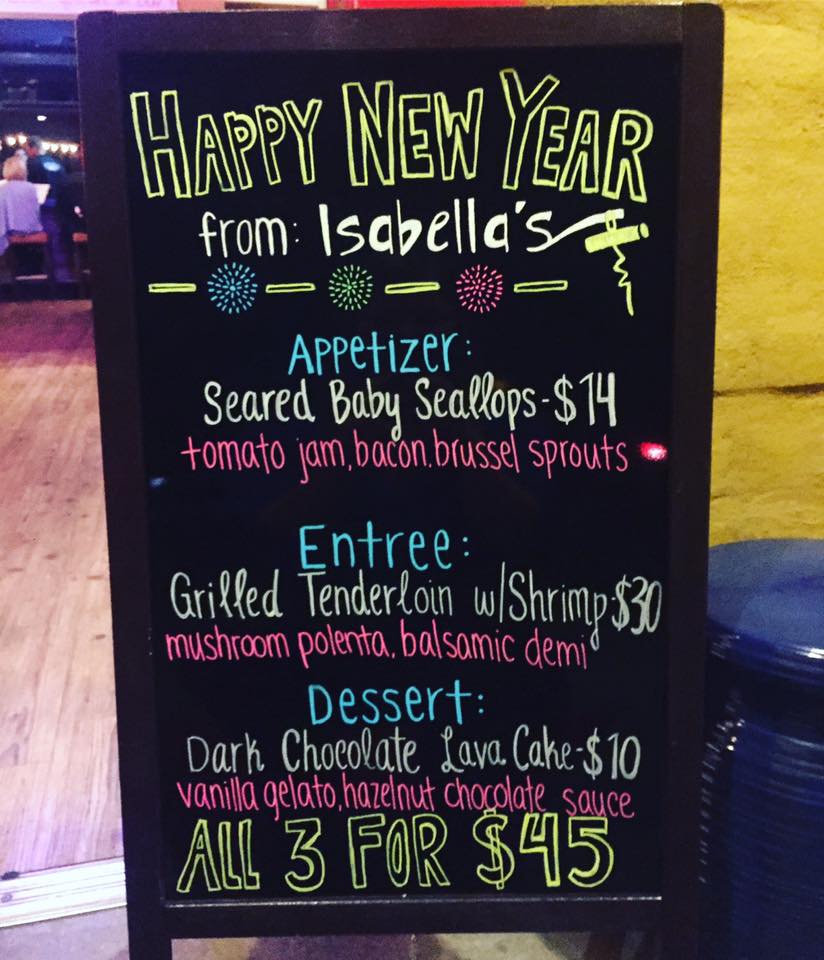 HAPPY NEW YEAR
from: Isabella's
APPetizer:
Seared Baby Scallops-$14
tomato jam, bacon. brussel sprouts
Entree:
Grilled Tenderloin w/Shrimp-$30
mushroom polenta, balsamic demi
Dessert:
Dark Chocolate Lava Cake-$10
vanilla gelato, hazelnut chocolate sauce
ALL 3 FOR $45